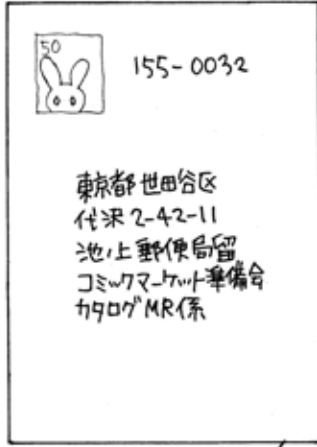 50
155-0032
東京都世田谷区
代沢2-42-11
池ノ上郵便局留
コミックマーケット準備会
カタログMR係